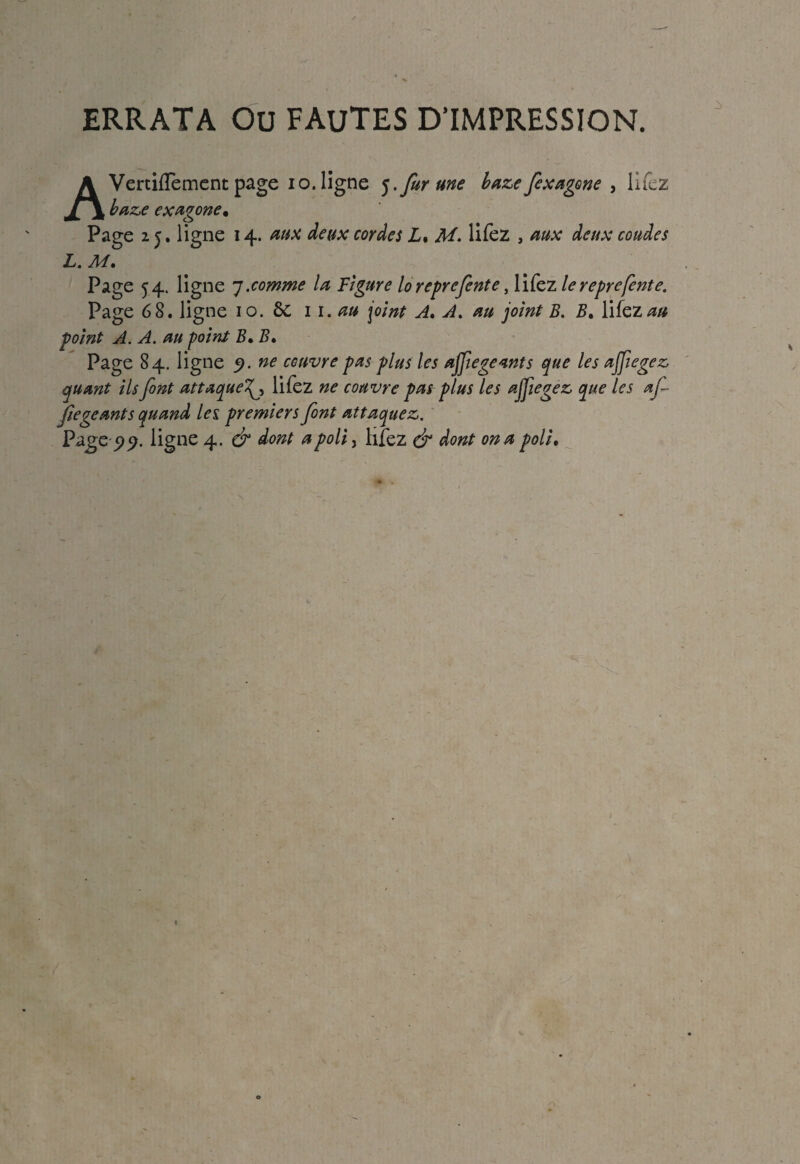 ERRATA OU FAUTES D'IMPRESSION.
AVertiſſement page 10. ligne 5. ſur une baze ſexagone, liſez
baze exagone.
Page 25. ligne 14. aux deux cordes L. M. liſez, aux deux coudes
L. M.
Page 54. ligne 7. comme la Figure lo repreſente, liſez le repreſente.
Page 68. ligne 10. & 11. au joint A. A. au joint B. B. liſez au
point A. A. au point B. B.
Page 84. ligne 9. ne couvre pas plus les aſſiegeants que les aſſiegez
quant ils ſont attaquez, liſez ne couvre pas plus les aſſiegez que les aſ-
ſiegeants quand les premiers ſont attaquez.
Page 99. ligne 4. & dont a poli, liſez & dont on a poli.